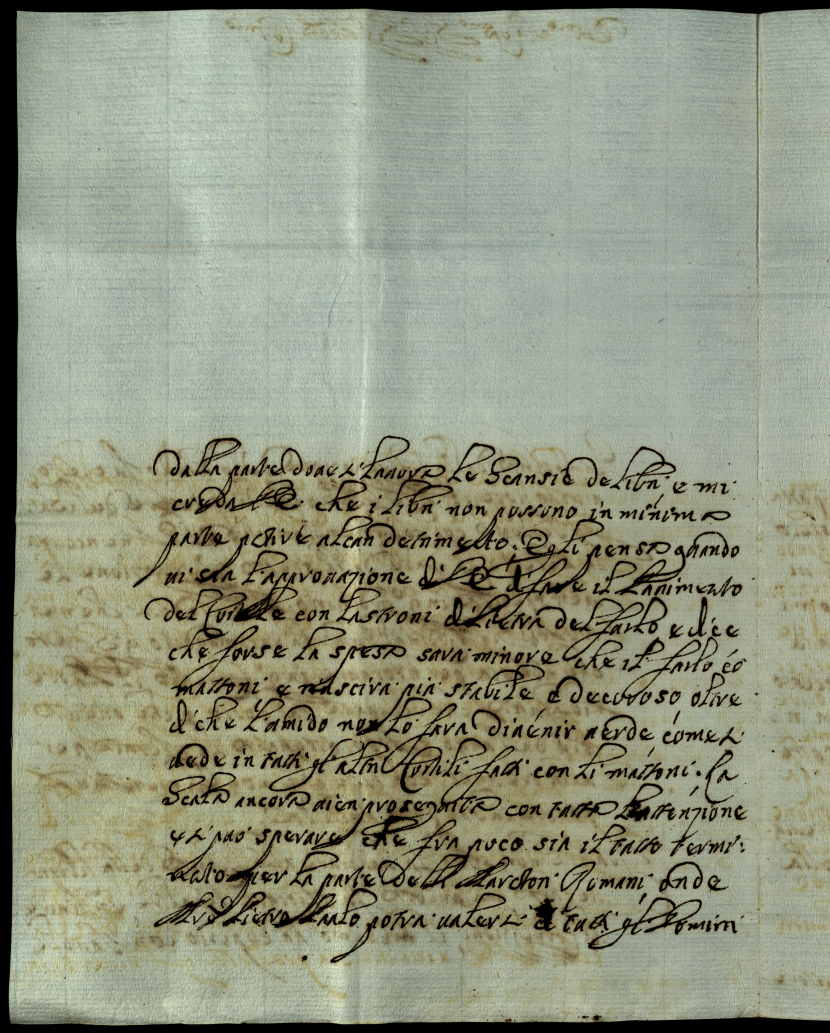 dalla parte doue si lauora le Scansie de libri e mi
creda che i libri non possono in minima
parte patire alcun detrimento. Egli pensa quando
ui sia l'approuazione di di fare il Pauimento
del Cortile con lastroni di Pietra del farlo e dice
che forse la spesa sarà minore che il farlo có
mattoni e riuscirà più stabile e decoroso oltre
di che l'umido non lo farà diuenir uerde come si
uede in tutti gl'altri Cortili fatti con li mattoni. La
Scala ancora uien proseguita con tutta l'attenzione
e si può sperare che fra poco sia il tutto termi:
nato per la parte delli Romani onde
Pietro Paolo potrà ualersi di tutti gl'Homini